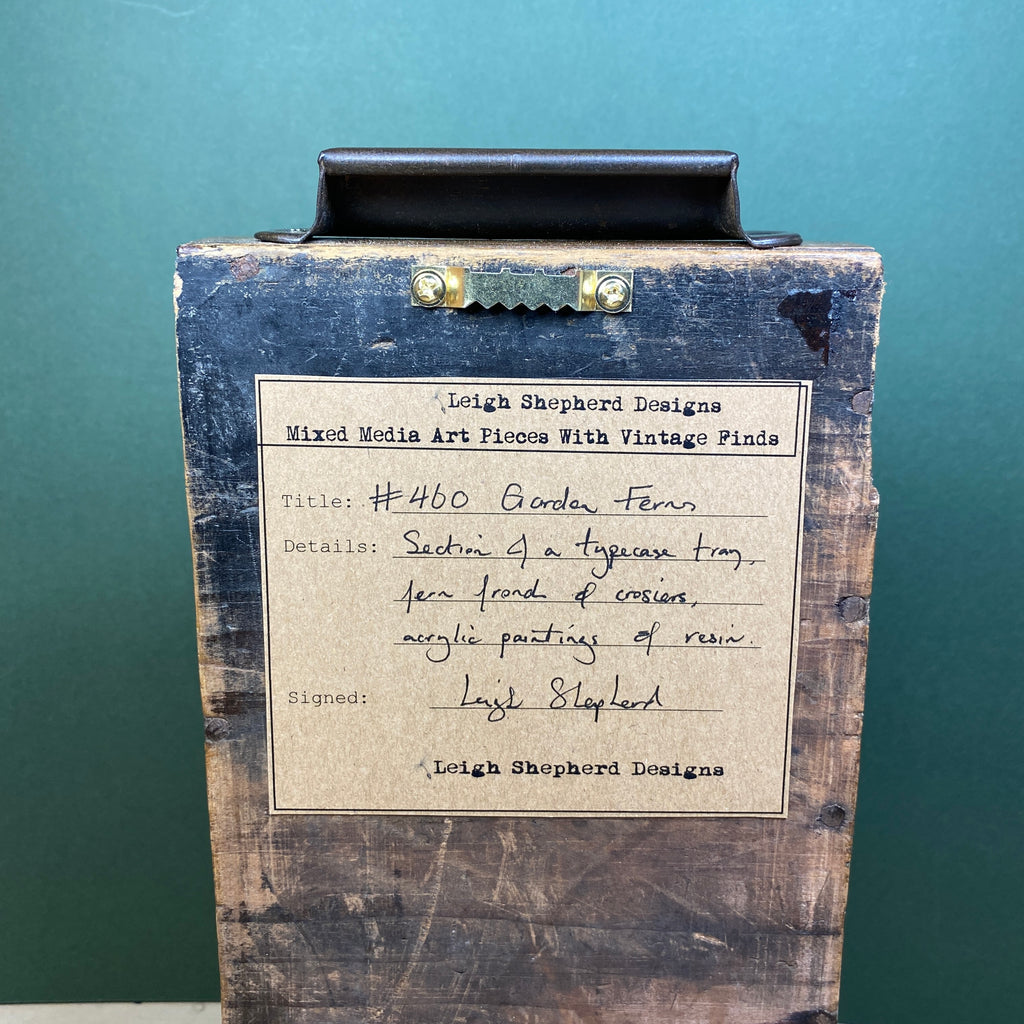 Leigh Shepherd Designs
Mixed Media Art Pieces With Vintage Finds
Title: #460 Garden Ferns
Details: Section of a typecase tray,
fern frond & crosiers,
acrylic paintings & resin.
Signed: Leigh Shepherd
Leigh Shepherd Designs